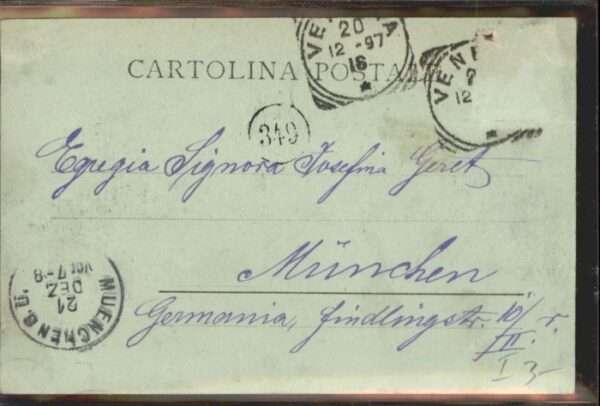 VENEZIA
20
12 - 97
16
VENE
12
CARTOLINA POSTALE
349
Egregia Signora Josefina Geret
München
Germania, Findlingstr. 10/
II. r.
I 3-
MUENCHEN B.B.
21
DEZ
VOR 7-8